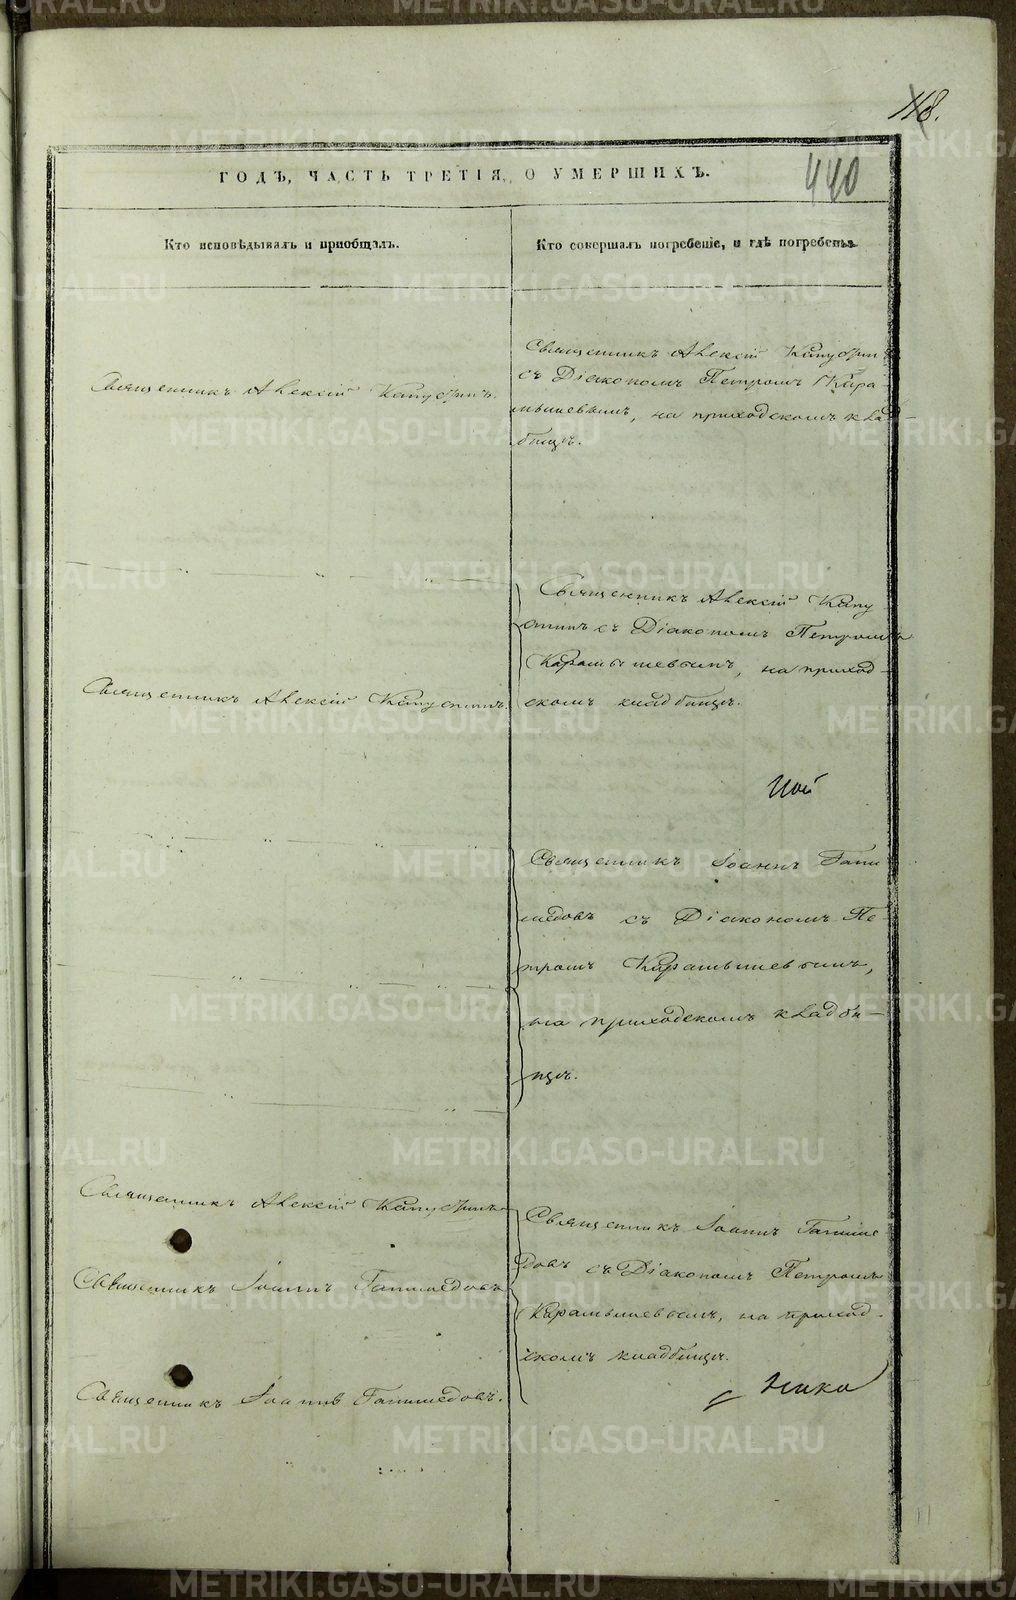 118.
440
ГОДЪ, ЧАСТЬ ТРЕТІЯ, О УМЕРШИХЪ.
Кто исповѣдывалъ и пріобщалъ.
Кто совершалъ погребеніе, и гдѣ погребены.
Священникъ Алексій Капустинъ.
Священникъ Алексій Капустинъ
съ Діакономъ Петромъ Кара-
мышевымъ, на приходскомъ клад-
бищѣ.
Священникъ Алексій Капустинъ.
Священникъ Алексій Капу-
стинъ съ Діакономъ Петромъ
Карамышевымъ, на приход-
скомъ кладбищѣ.
Священникъ Іоаннъ Гани-
медовъ съ Діакономъ Пе-
тромъ Карамышевымъ,
на приходскомъ кладби-
щѣ.
Священникъ Алексій Капустинъ
Священникъ Іоаннъ Ганимедовъ
Священникъ Іоаннъ Ганимедовъ.
Священникъ Іоаннъ Ганиме-
довъ съ Діакономъ Петромъ
Карамышевымъ, на приход-
скомъ кладбищѣ.
Нико
METRIKI.GASO-URAL.RU